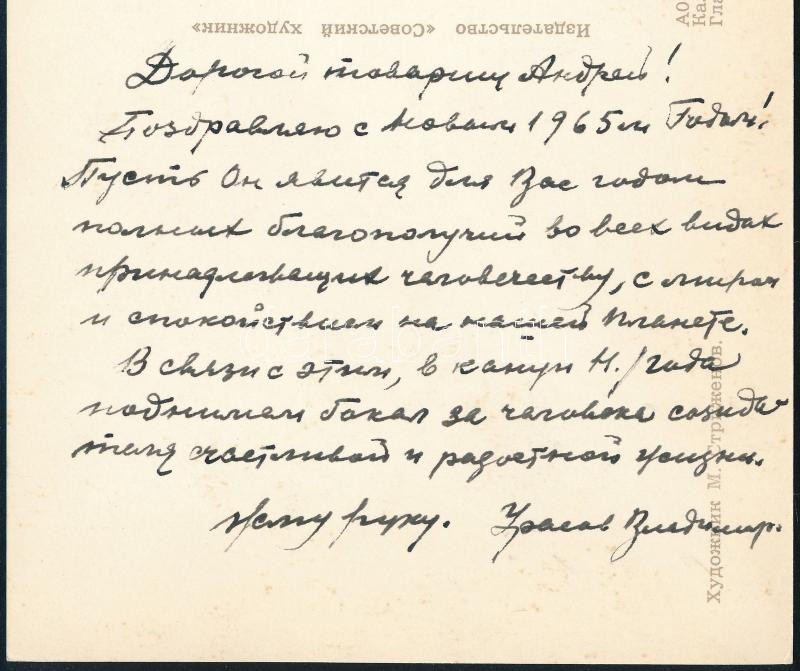 Издательство «Советский художник»
А0
Ка
Гла
Дорогой товарищ Андрей!
Поздравляю с Новым 1965 м Годом!
Пусть Он явится для Вас годом
полных благополучий во всех видах
принадлежащих человечеству, с миром
и спокойствием на нашей Планете.
В связи с этим, в канун Н./года
поднимаем бокал за человека созида-
теля счастливой и радостной жизни.
Жму руку. Урасов Владимир.
Художник М. Стриженов.
darabanth